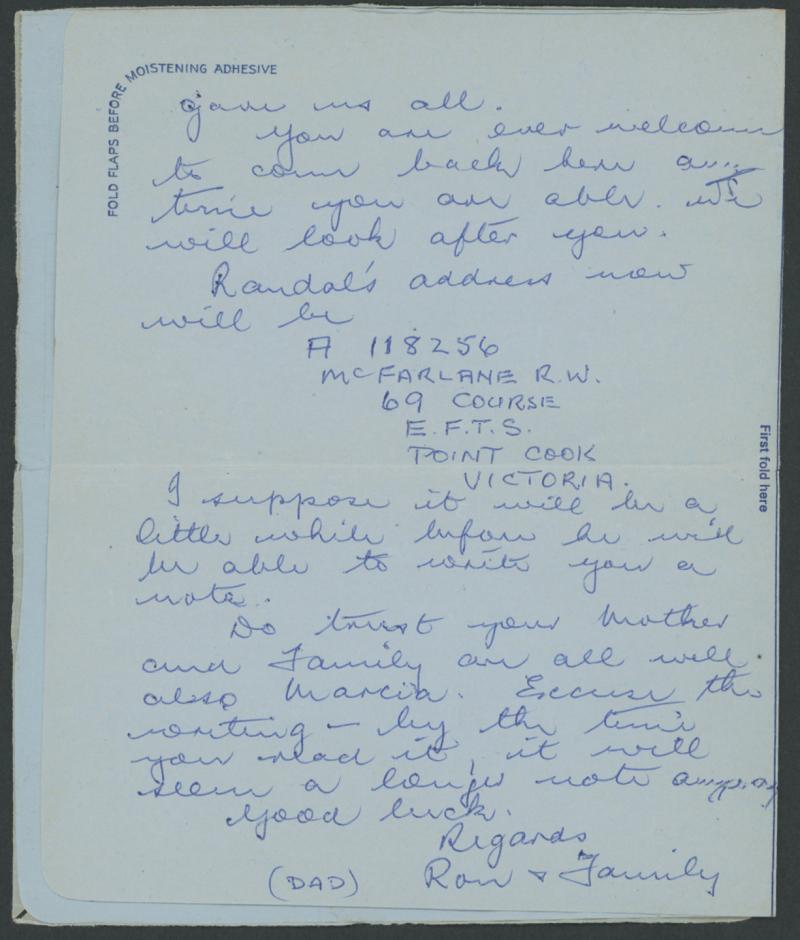 FOLD FLAPS BEFORE MOISTENING ADHESIVE
gave us all.
You are ever welcome
to come back here any
time you are able. We
will look after you.
Randal's address now
will be
A 118256
McFARLANE R.W.
69 COURSE
E.F.T.S.
POINT COOK
VICTORIA.
First fold here
I suppose it will be a
little while before he will
be able to write you a
note.
Do trust your Mother
and Family are all well
also Marcia. Excuse the
writing – by the time
you read it, it will
seem a longer note anyway
Good luck.
Regards
(DAD) Ron & Family